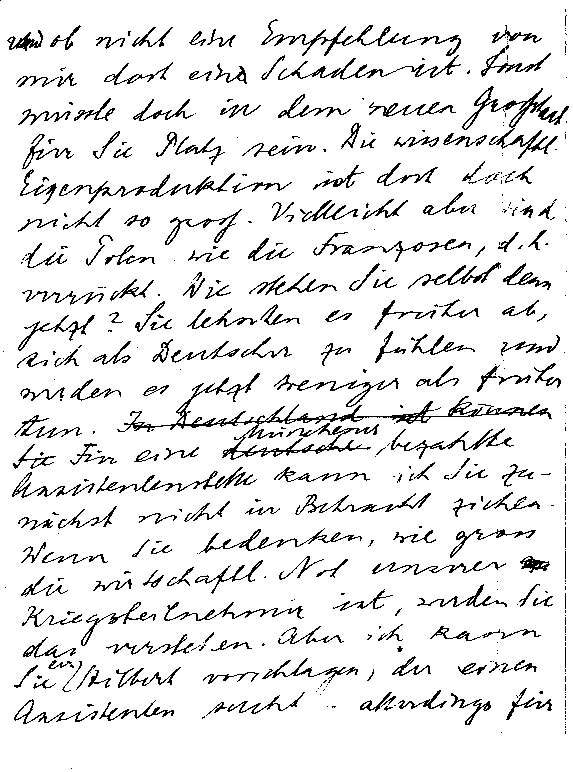 und ob nicht eine Empfehlung von
mir dort ein Schaden ist. Sonst
müsste doch in dem neuen Grosstaat
für Sie Platz sein. Die wissenschaftl.
Eigenproduktion ist dort doch
nicht so gross. Vielleicht aber sind
die Polen wie die Franzosen, d. h.
verrückt. Wie stehen Sie selbst denn
jetzt? Sie lehnten es früher ab,
sich als Deutscher zu fühlen und
werden es jetzt weniger als früher
tun. In Deutschland ist können
Sie Für eine deutsche Münchener bezahlte
Assistentenstelle kann ich Sie zu-
nächst nicht in Betracht ziehen.
Wenn Sie bedenken, wie gross
die wirtschaftl. Not unserer
Kriegsteilnehmer ist, werden Sie
das verstehen. Aber ich kann
Sie Hilbert vorschlagen, der einen
Assistenten sucht - allerdings für